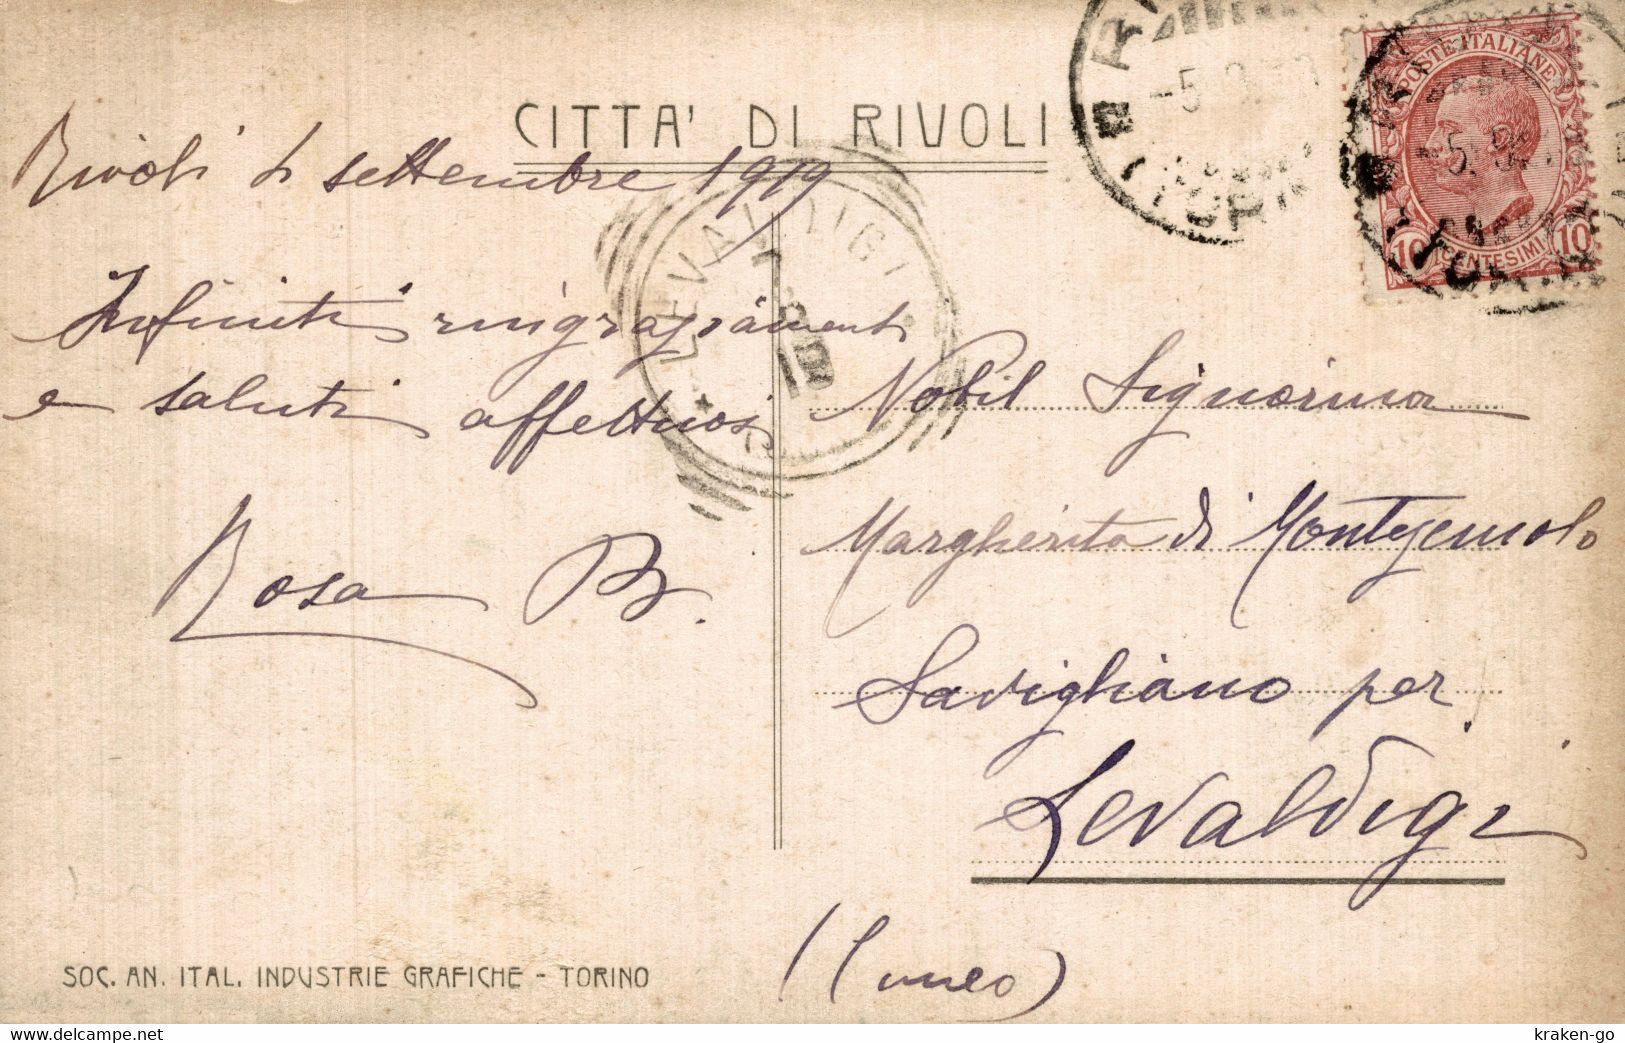 CITTA' DI RIVOLI
Rivoli 4 settembre 1919
Infiniti ringraziamenti
e saluti affettuosi
Rosa B.
LEVALDIGI
POSTE ITALIANE
10 CENTESIMI 10
Nobil Signorina
Margherita di Montezemolo
Savigliano per
Levaldigi
(Cuneo)
SOC. AN. ITAL. INDUSTRIE GRAFICHE - TORINO
www.delcampe.net
kraken-go